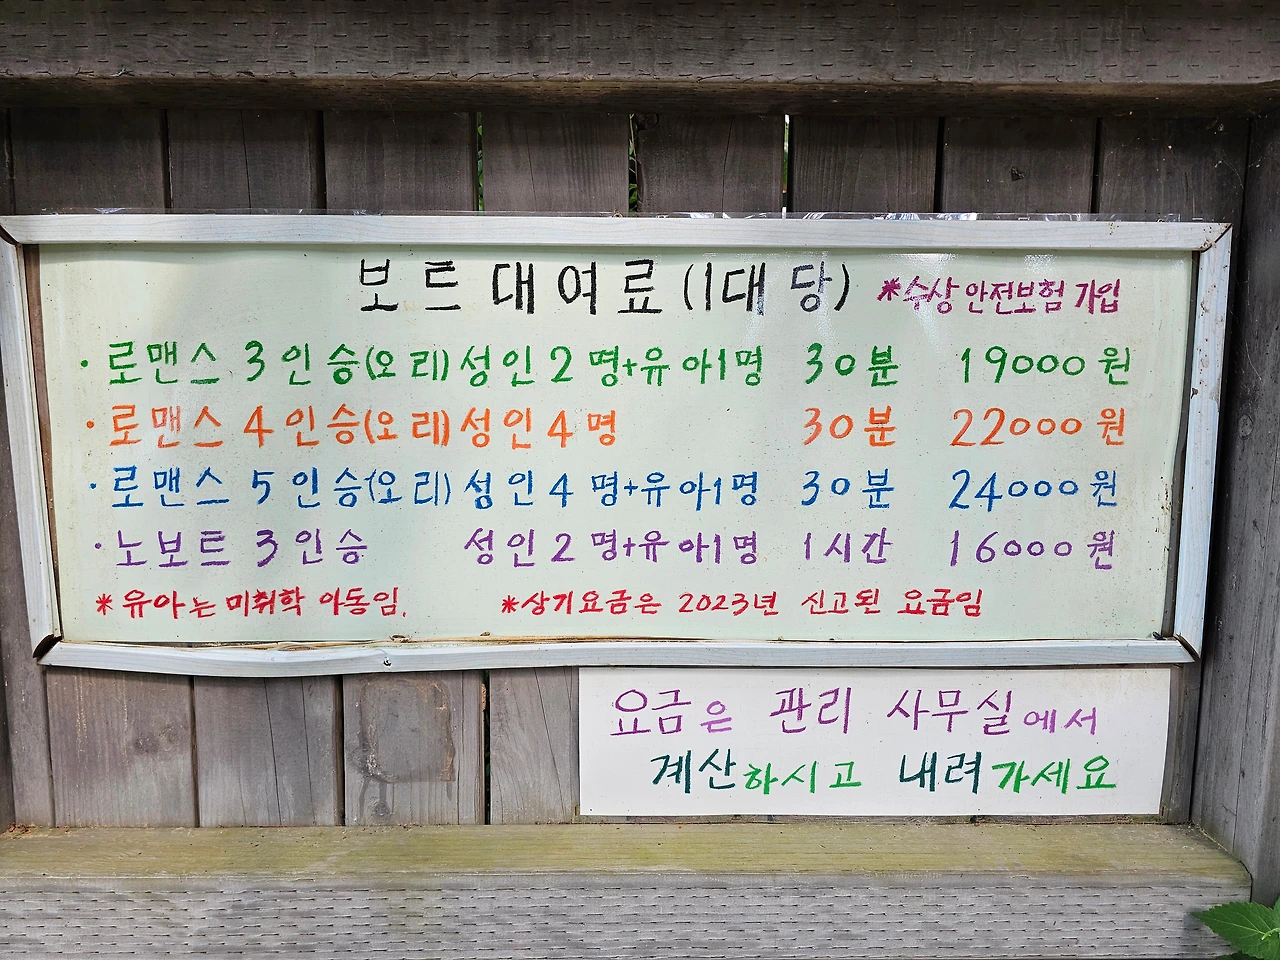 보트대여료(1대당) *수상안전보험가입
·로맨스 3인승(오리)성인2명+유아1명 30분 19000원
·로맨스 4인승(오레)성인4명 30분 22000원
·로맨스 5인승(오리)성인4명+유아1명 30분 24000원
·노보트 3인승 성인2명+유아1명 1시간 16000원
*유아는 미취학 아동임. *상기요금은 2023년 신고된 요금임
요금은 관리 사무실에서
계산하시고 내려가세요